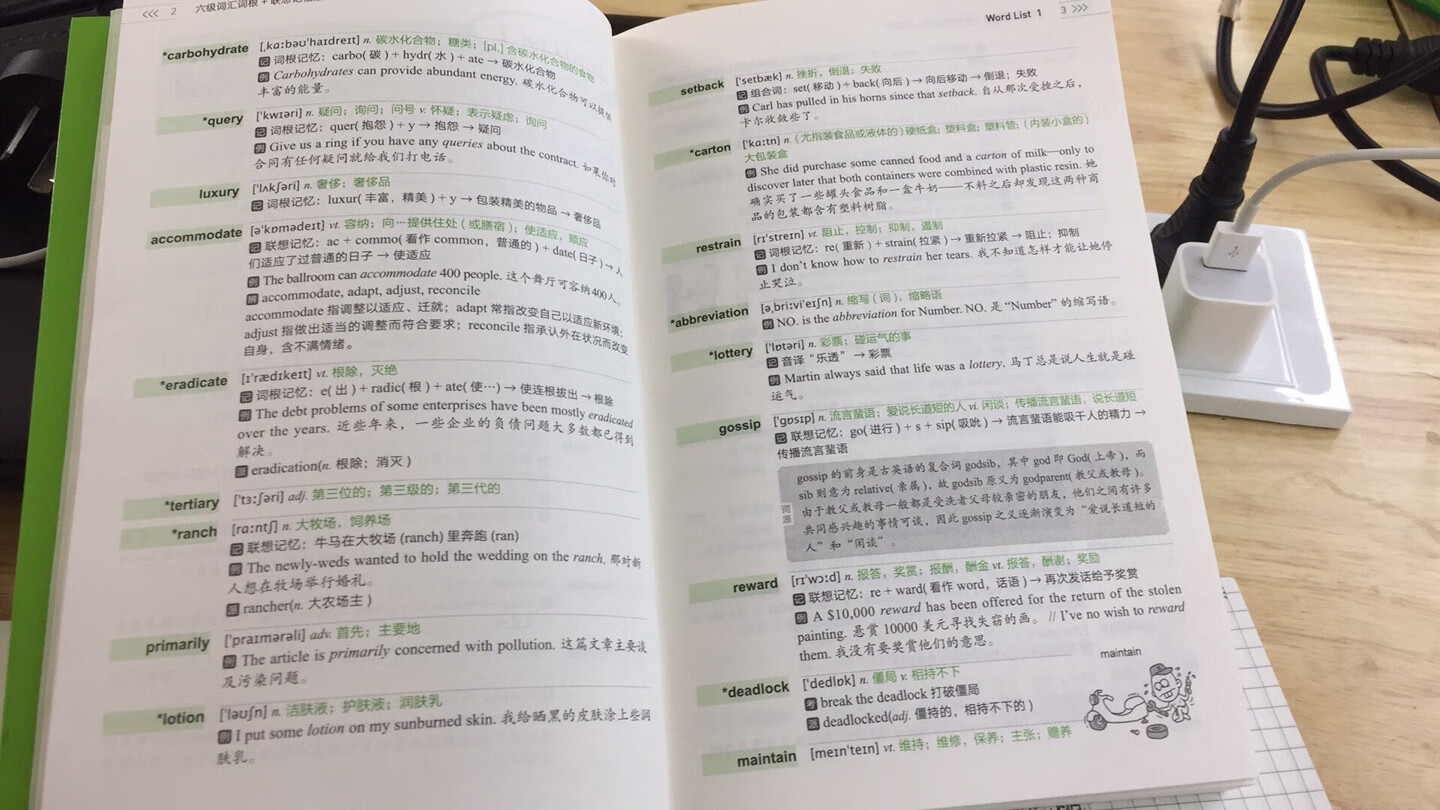 <<< 2 六级词汇词根 +
*carbohydrate [ˌkɑːbəʊˈhaɪdreɪt] n. 碳水化合物；糖类；[pl.] 含碳水化合物的食物
记 词根记忆：carbo( 碳 ) + hydr( 水 ) + ate → 碳水化合物
例 Carbohydrates can provide abundant energy. 碳水化合物可以提供
丰富的能量。
*query [ˈkwɪəri] n. 疑问；询问；问号 v. 怀疑；表示疑虑；询问
记 词根记忆：quer( 抱怨 ) + y → 抱怨 → 疑问
例 Give us a ring if you have any queries about the contract. 如果你对
合同有任何疑问就给我们打电话。
luxury [ˈlʌkʃəri] n. 奢侈；奢侈品
记 词根记忆：luxur( 丰富，精美 ) + y → 包装精美的物品 → 奢侈品
accommodate [əˈkɒmədeɪt] vt. 容纳；向…提供住处 ( 或膳宿 )；使适应，顺应
记 联想记忆：ac + commo( 看作 common，普通的 ) + date( 日子 ) → 人
们适应了过普通的日子 → 使适应
例 The ballroom can accommodate 400 people. 这个舞厅可容纳400人。
辨 accommodate, adapt, adjust, reconcile
accommodate 指调整以适应、迁就；adapt 常指改变自己以适应新环境；
adjust 指做出适当的调整而符合要求；reconcile 指承认外在状况而改变
自身，含不满情绪。
*eradicate [ɪˈrædɪkeɪt] vt. 根除，灭绝
记 词根记忆：e( 出 ) + radic( 根 ) + ate( 使… ) → 使连根拔出 → 根除
例 The debt problems of some enterprises have been mostly eradicated
over the years. 近些年来，一些企业的负债问题大多数都已得到
解决。
源 eradication(n. 根除；消灭 )
*tertiary [ˈtɜːʃəri] adj. 第三位的；第三级的；第三代的
*ranch [rɑːntʃ] n. 大牧场，饲养场
记 联想记忆：牛马在大牧场 (ranch) 里奔跑 (ran)
例 The newly-weds wanted to hold the wedding on the ranch. 那对新
人想在牧场举行婚礼。
源 rancher(n. 大农场主 )
primarily [ˈpraɪmərəli] adv. 首先；主要地
例 The article is primarily concerned with pollution. 这篇文章主要谈
及污染问题。
*lotion [ˈləʊʃn] n. 洁肤液；护肤液；润肤乳
例 I put some lotion on my sunburned skin. 我给晒黑的皮肤涂上些润
肤乳。
Word List 1 3 >>>
setback [ˈsetbæk] n. 挫折，倒退；失败
记 组合词：set( 移动 ) + back( 向后 ) → 向后移动 → 倒退；失败
例 Carl has pulled in his horns since that setback. 自从那次受挫之后，
卡尔收敛些了。
*carton [ˈkɑːtn] n. ( 尤指装食品或液体的 ) 硬纸盒；塑料盒；塑料管；( 内装小盒的 )
大包装盒
例 She did purchase some canned food and a carton of milk—only to
discover later that both containers were combined with plastic resin. 她
确实买了一些罐头食品和一盒牛奶——不料之后却发现这两种商
品的包装都含有塑料树脂。
restrain [rɪˈstreɪn] vt. 阻止，控制；抑制，遏制
记 词根记忆：re( 重新 ) + strain( 拉紧 ) → 重新拉紧 → 阻止；抑制
例 I don't know how to restrain her tears. 我不知道怎样才能让她停
止哭泣。
*abbreviation [əˌbriːviˈeɪʃn] n. 缩写 ( 词 )，缩略语
例 NO. is the abbreviation for Number. NO. 是 "Number" 的缩写语。
*lottery [ˈlɒtəri] n. 彩票；碰运气的事
记 音译 "乐透" → 彩票
例 Martin always said that life was a lottery. 马丁总是说人生就是碰
运气。
gossip [ˈɡɒsɪp] n. 流言蜚语；爱说长道短的人 vi. 闲谈；传播流言蜚语，说长道短
记 联想记忆：go( 进行 ) + s + sip( 吸吮 ) → 流言蜚语能吸干人的精力 →
传播流言蜚语
词源 gossip 的前身是古英语的复合词 godsib，其中 god 即 God( 上帝 )，而
sib 则意为 relative( 亲属 )，故 godsib 原义为 godparent( 教父或教母 )。
由于教父或教母一般都是受洗者父母较亲密的朋友，他们之间有许多
共同感兴趣的事情可谈，因此 gossip 之义逐渐演变为 "爱说长道短的
人" 和 "闲谈" 。
reward [rɪˈwɔːd] n. 报答，奖赏；报酬，酬金 vt. 报答，酬谢；奖励
记 联想记忆：re + ward( 看作 word，话语 ) → 再次发话给予奖赏
例 A $10,000 reward has been offered for the return of the stolen
painting. 悬赏 10000 美元寻找失窃的画。 // I've no wish to reward
them. 我没有要奖赏他们的意思。
*deadlock [ˈdedlɒk] n. 僵局 v. 相持不下
考 break the deadlock 打破僵局
源 deadlocked(adj. 僵持的，相持不下的 )
maintain
maintain [meɪnˈteɪn] vt. 维持；维修，保养；主张；赡养